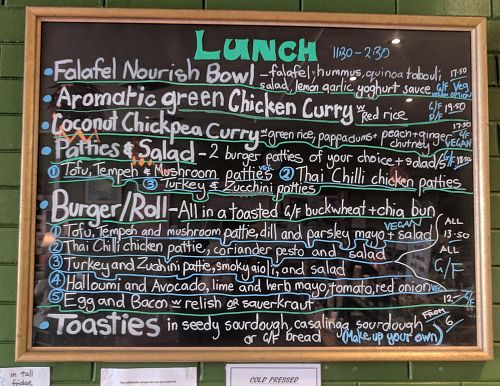 LUNCH 11:30-2:30
• Falafel Nourish Bowl - falafel, hummus, quinoa tabouli 17.50
salad, lemon garlic yoghurt sauce G/F Veg
vegan option
• Aromatic green Chicken Curry w Red rice G/F 19.50
D/F
• Coconut Chickpea Curry w green rice, pappadums + peach + ginger chutney 17.50 G/F VEGAN
• Patties & Salad - 2 burger patties of your choice + salad/s G/F 18.50
① Tofu, Tempeh & Mushroom patties ② Thai Chilli chicken patties
③ Turkey & Zucchini patties
• Burger/Roll - All in a toasted G/F buckwheat + chia bun
① Tofu, Tempeh and mushroom pattie, dill and parsley mayo + salad VEGAN ALL 13.50
② Thai Chilli chicken pattie, coriander pesto and salad ALL G/F
③ Turkey and Zucchini pattie, smoky aioli, and salad
④ Halloumi and Avocado, lime and herb mayo, tomato, red onion
⑤ Egg and Bacon w relish or sauerkraut 12-
• Toasties in seedy sourdough, casalinga sourdough FROM 6
or G/F bread (Make up your own)
in tall
fridge
COLD PRESSED